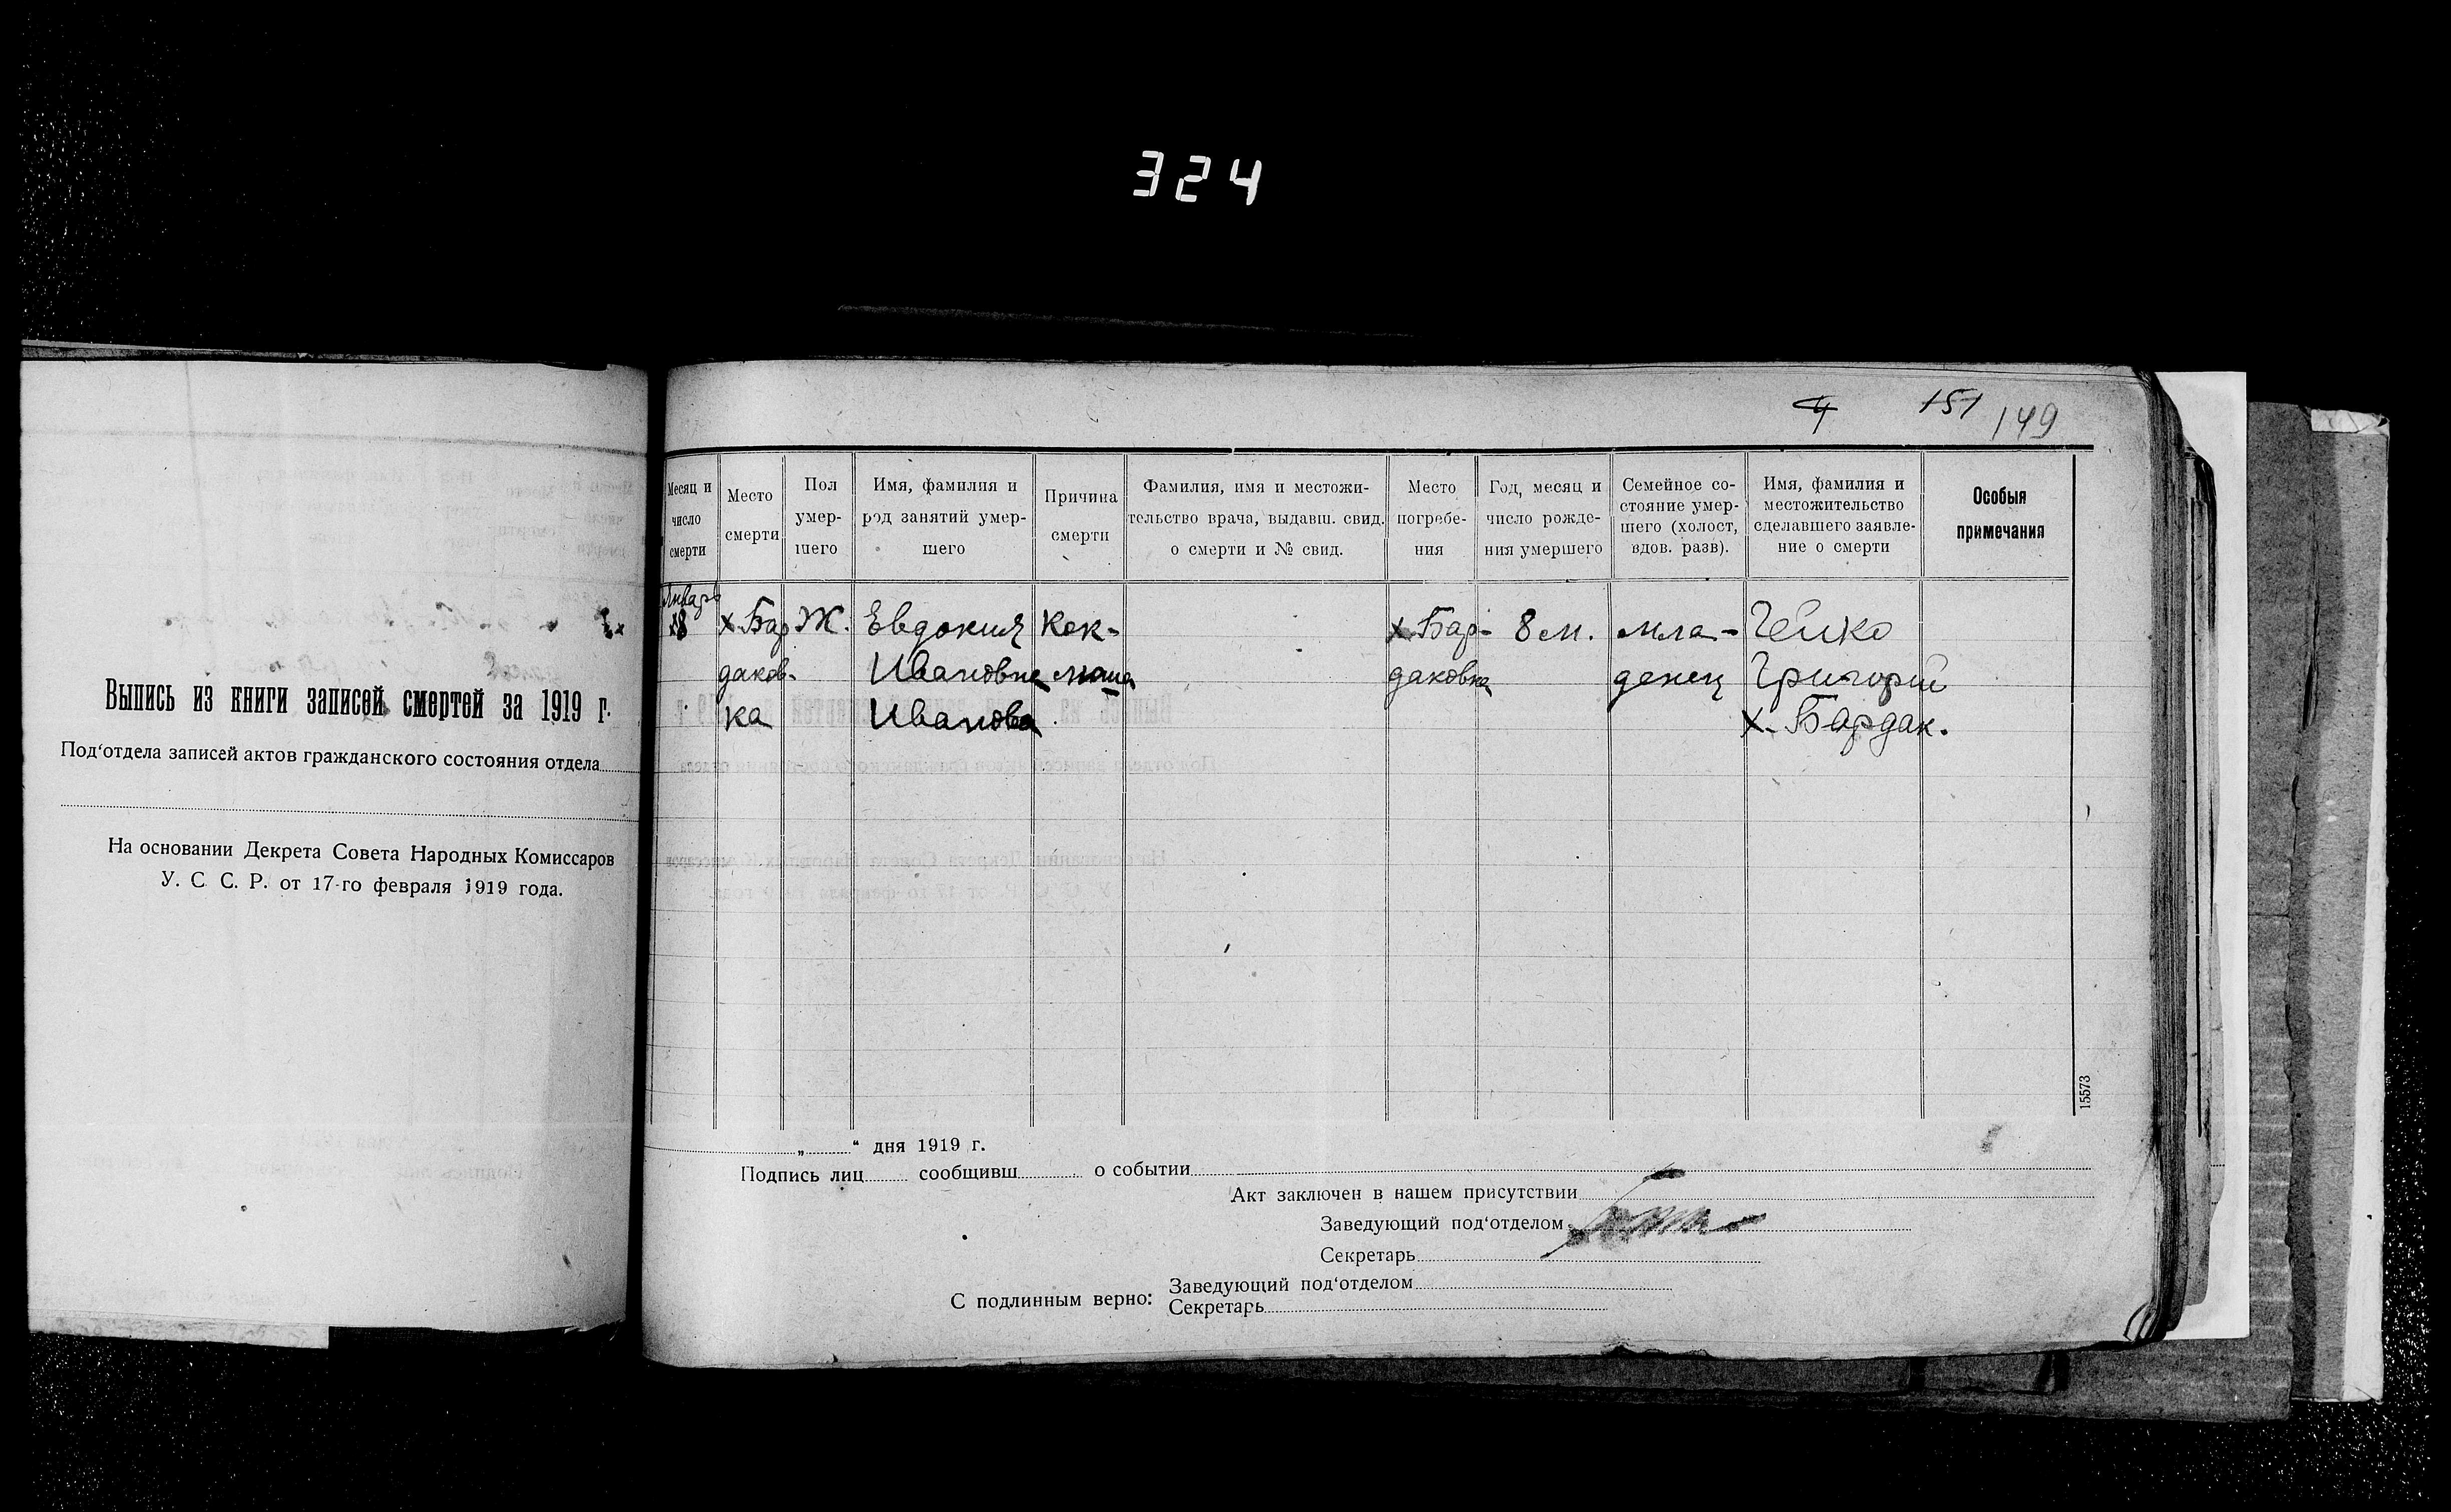 324
4 151 149
Выпись из книги записей смертей за 1919 г.
Под‘отдела записей актов гражданского состояния отдела
На основании Декрета Совета Народных Комиссаров
У. С. С. Р. от 17-го февраля 1919 года.
Месяц и число смерти
Место смерти
Пол умер-
шего
Имя, фамилия и
род занятий умер-
шего
Причина смерти
Фамилия, имя и местожи-
тельство врача, выдавш. свид.
о смерти и № свид.
Место
погребе-
ния
Год, месяц и
число рожде-
ния умершего
Семейное со-
стояние умер-
шего (холост,
вдов. разв).
Имя, фамилия и
местожительство
сделавшего заявле-
ние о смерти
Особыя
примечания
Январь
х. Бар
даков-
ка
Ж.
Евдокия
Ивановна
Иванова
Кок-
люша
х. Бар-
даковка
8 м.
мла-
денец
Гейко
Григорий
х. Бардак.
15573
„ “ дня 1919 г.
Подпись лиц сообщивш о событии
Акт заключен в нашем присутствии
Заведующий под‘отделом
Секретарь
С подлинным верно:
Заведующий под‘отделом
Секретарь